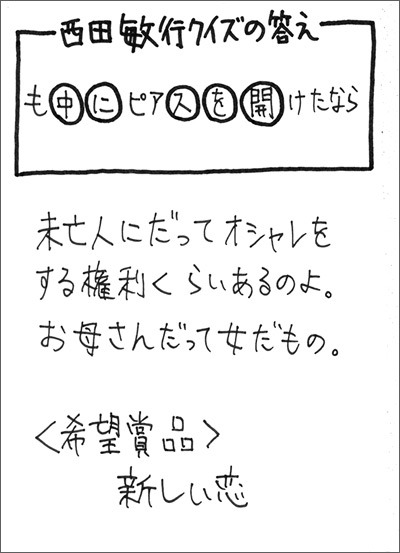 西田敏行クイズの答え
も中にピアスを開けたなら
未亡人にだってオシャレを
する権利くらいあるのよ。
お母さんだって女だもの。
<希望賞品>
新しい恋